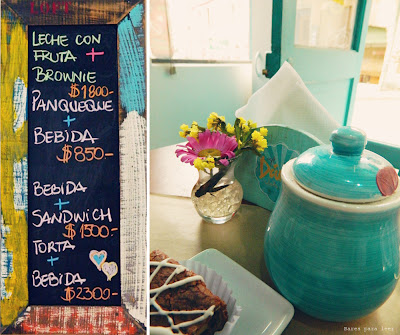 LECHE CON
FRUTA +
BROWNIE
$1800-
PANQUEQUE
+
BEBIDA
$850-
BEBIDA
+
SANDWICH
$1500-
TORTA
+
BEBIDA
$2300-